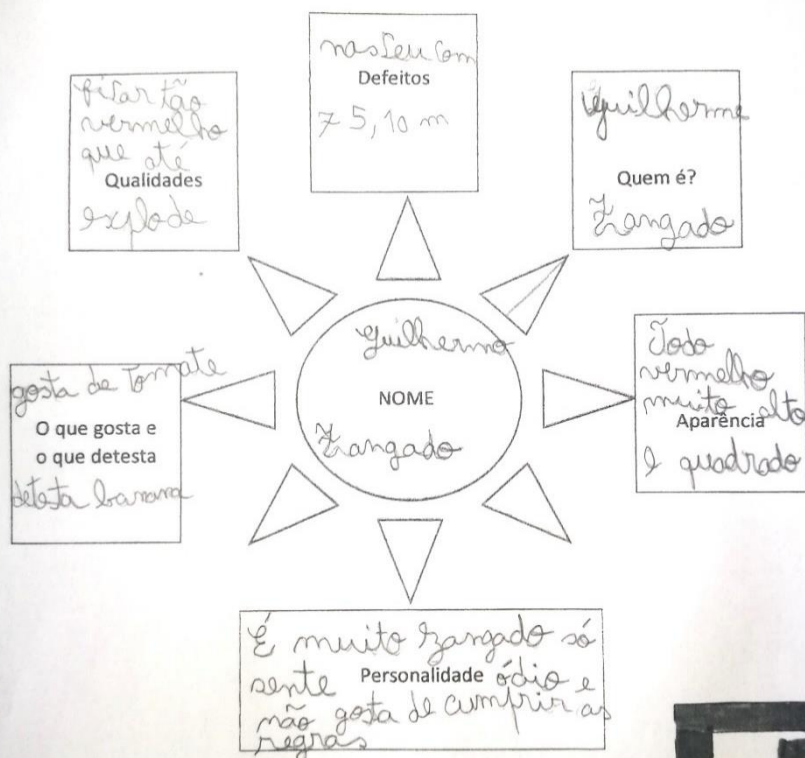 nasceu com
Defeitos
75,10 m
ficar tão
vermelho
que até
Qualidades
explode
Guilherme
Quem é?
Zangado
Guilherme
NOME
Zangado
Todo
vermelho
muito alto
Aparência
e quadrado
gosta de Tomate
O que gosta e
o que detesta
detesta banana
É muito zangado só
sente Personalidade ódio e
não gosta de cumprir as
regras